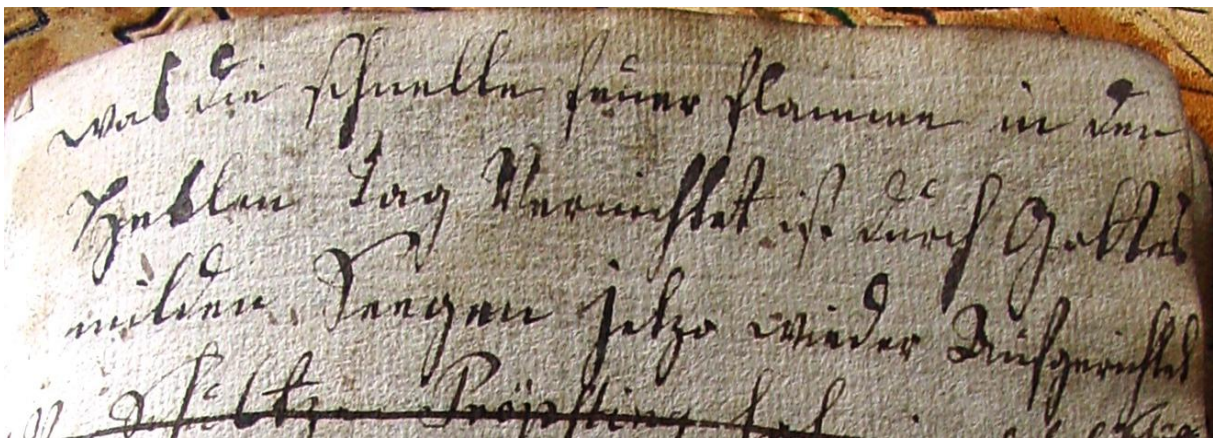 was die schnelle feuer flamme in den
Hellen tag Vernichtet ist durch Gottes
milden Seegen Jetzo wieder Aufgerichtet
Schultze